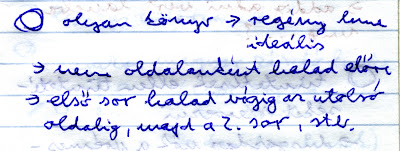 olyan könyv → regény lenne
ideális
→ nem oldalanként halad előre
→ első sor halad végig az utolsó
oldalig, majd a 2. sor, stb.